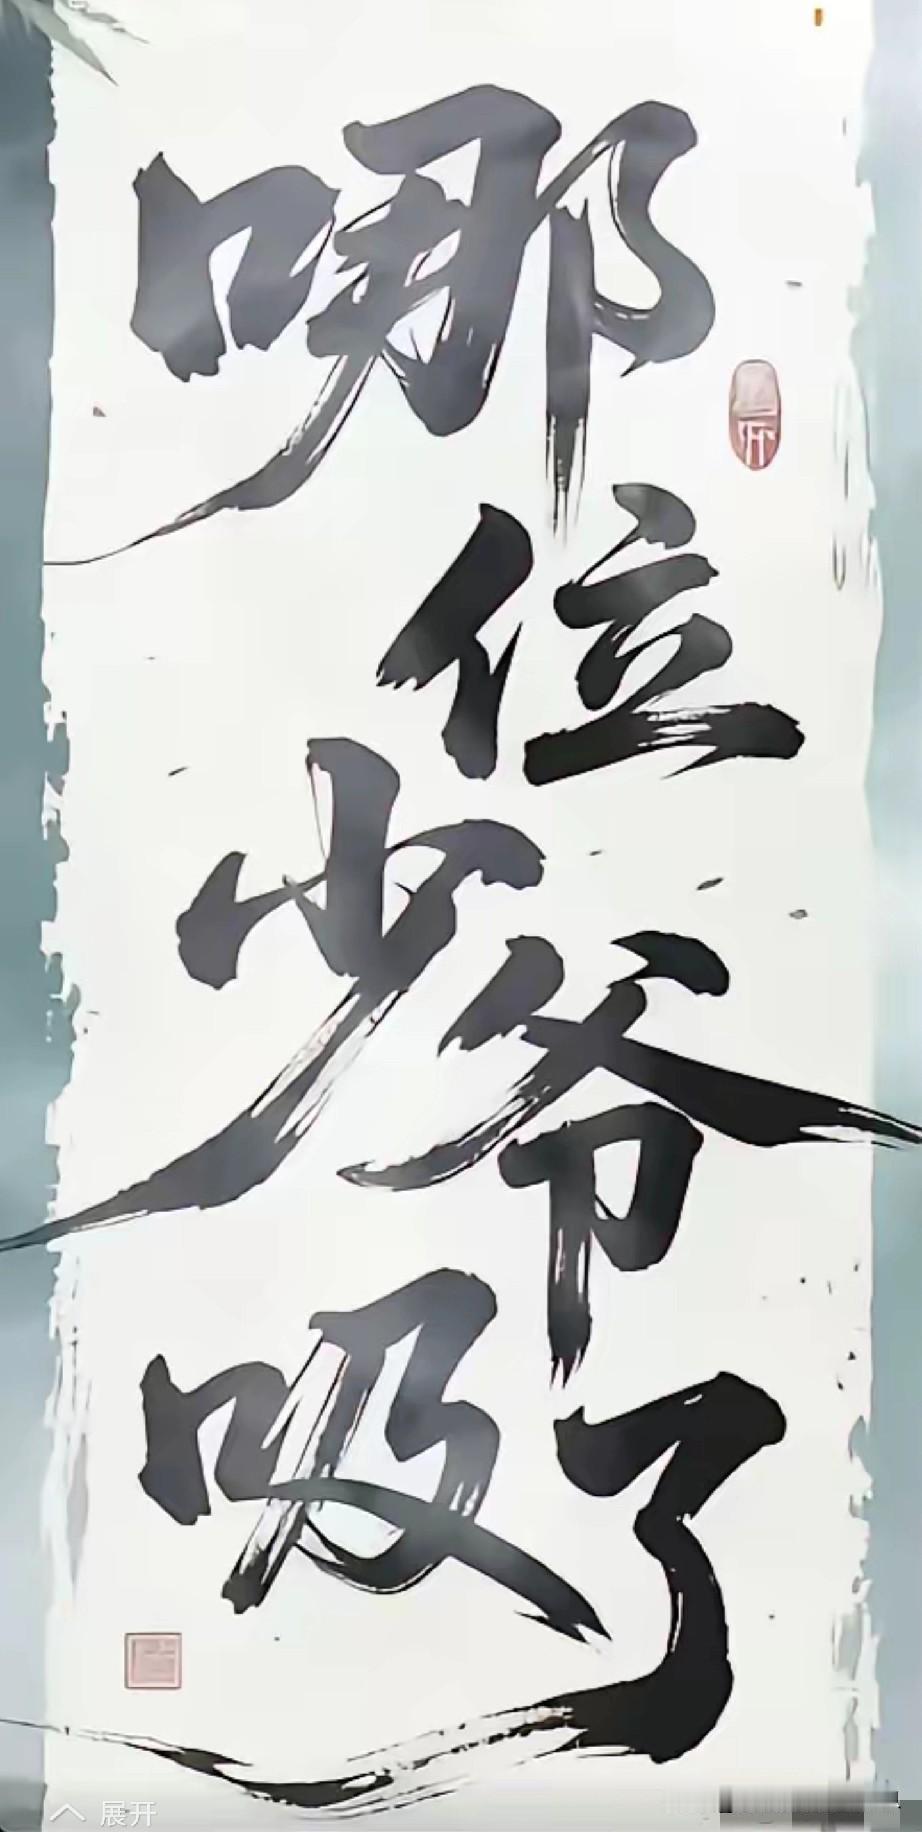 哪位少爷吸了
展开